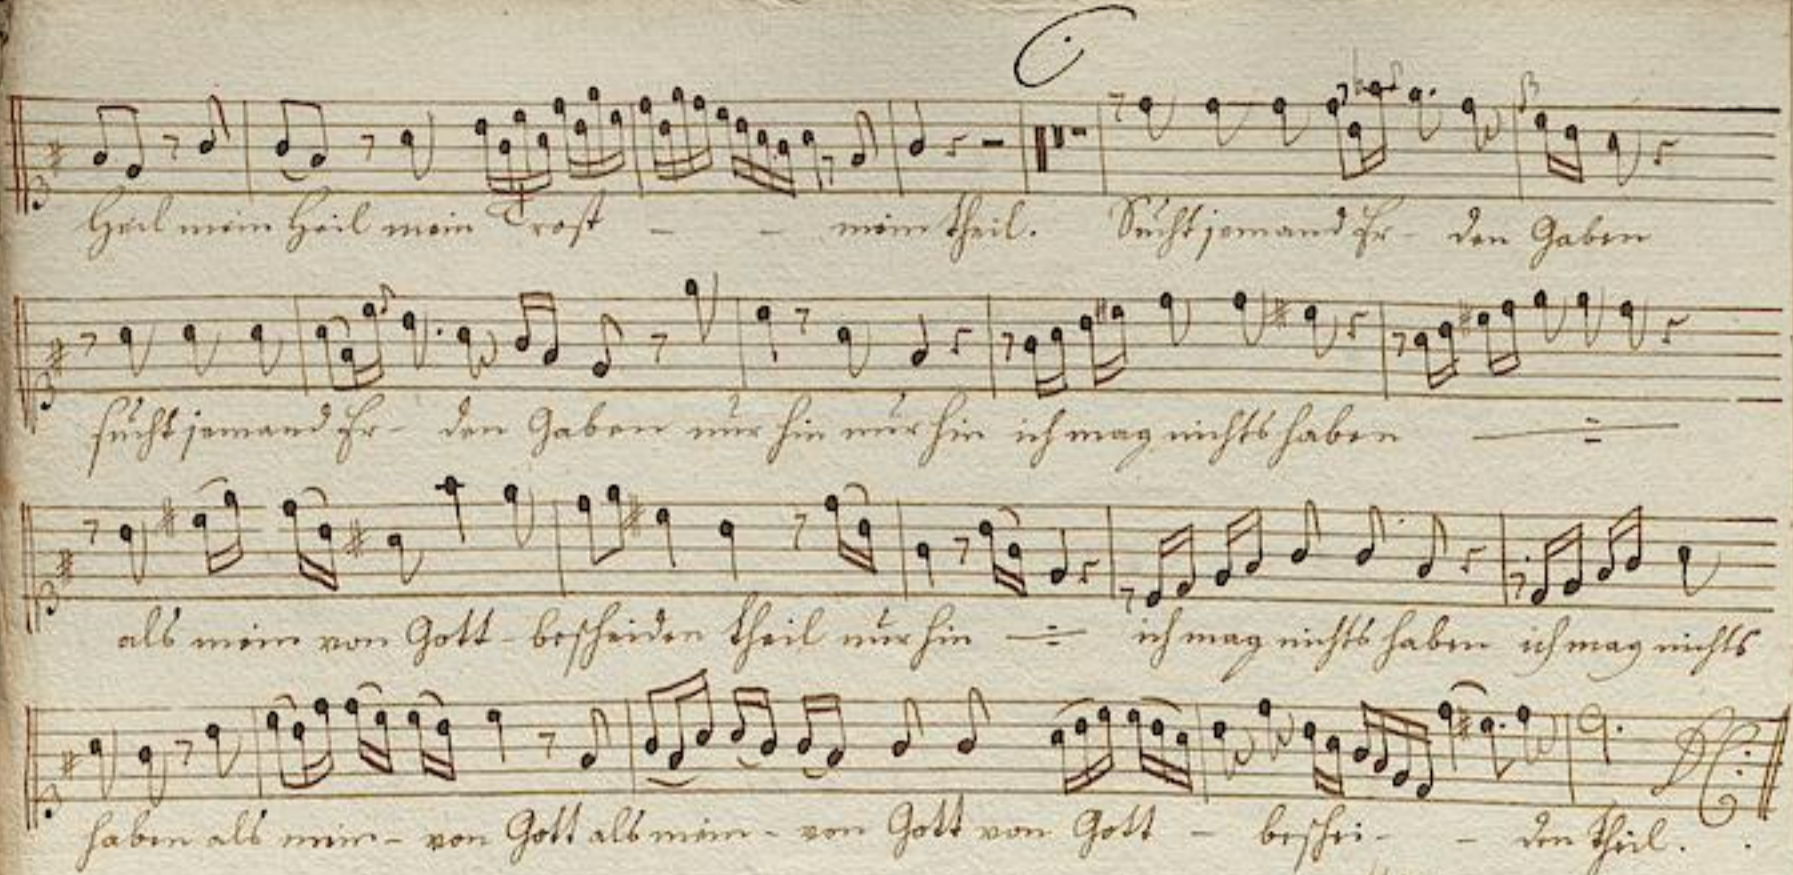 Heil mein Heil mein Trost - - mein Theil. Sucht jemand Er- den Gaben
sucht jemand Er- den Gaben nur hin nur hin ich mag nichts haben
als mein von Gott - bescheiden Theil nur hin ich mag nichts haben ich mag nichts
haben als mein - von Gott als mein - von Gott von Gott - beschei- - den Theil.
DC